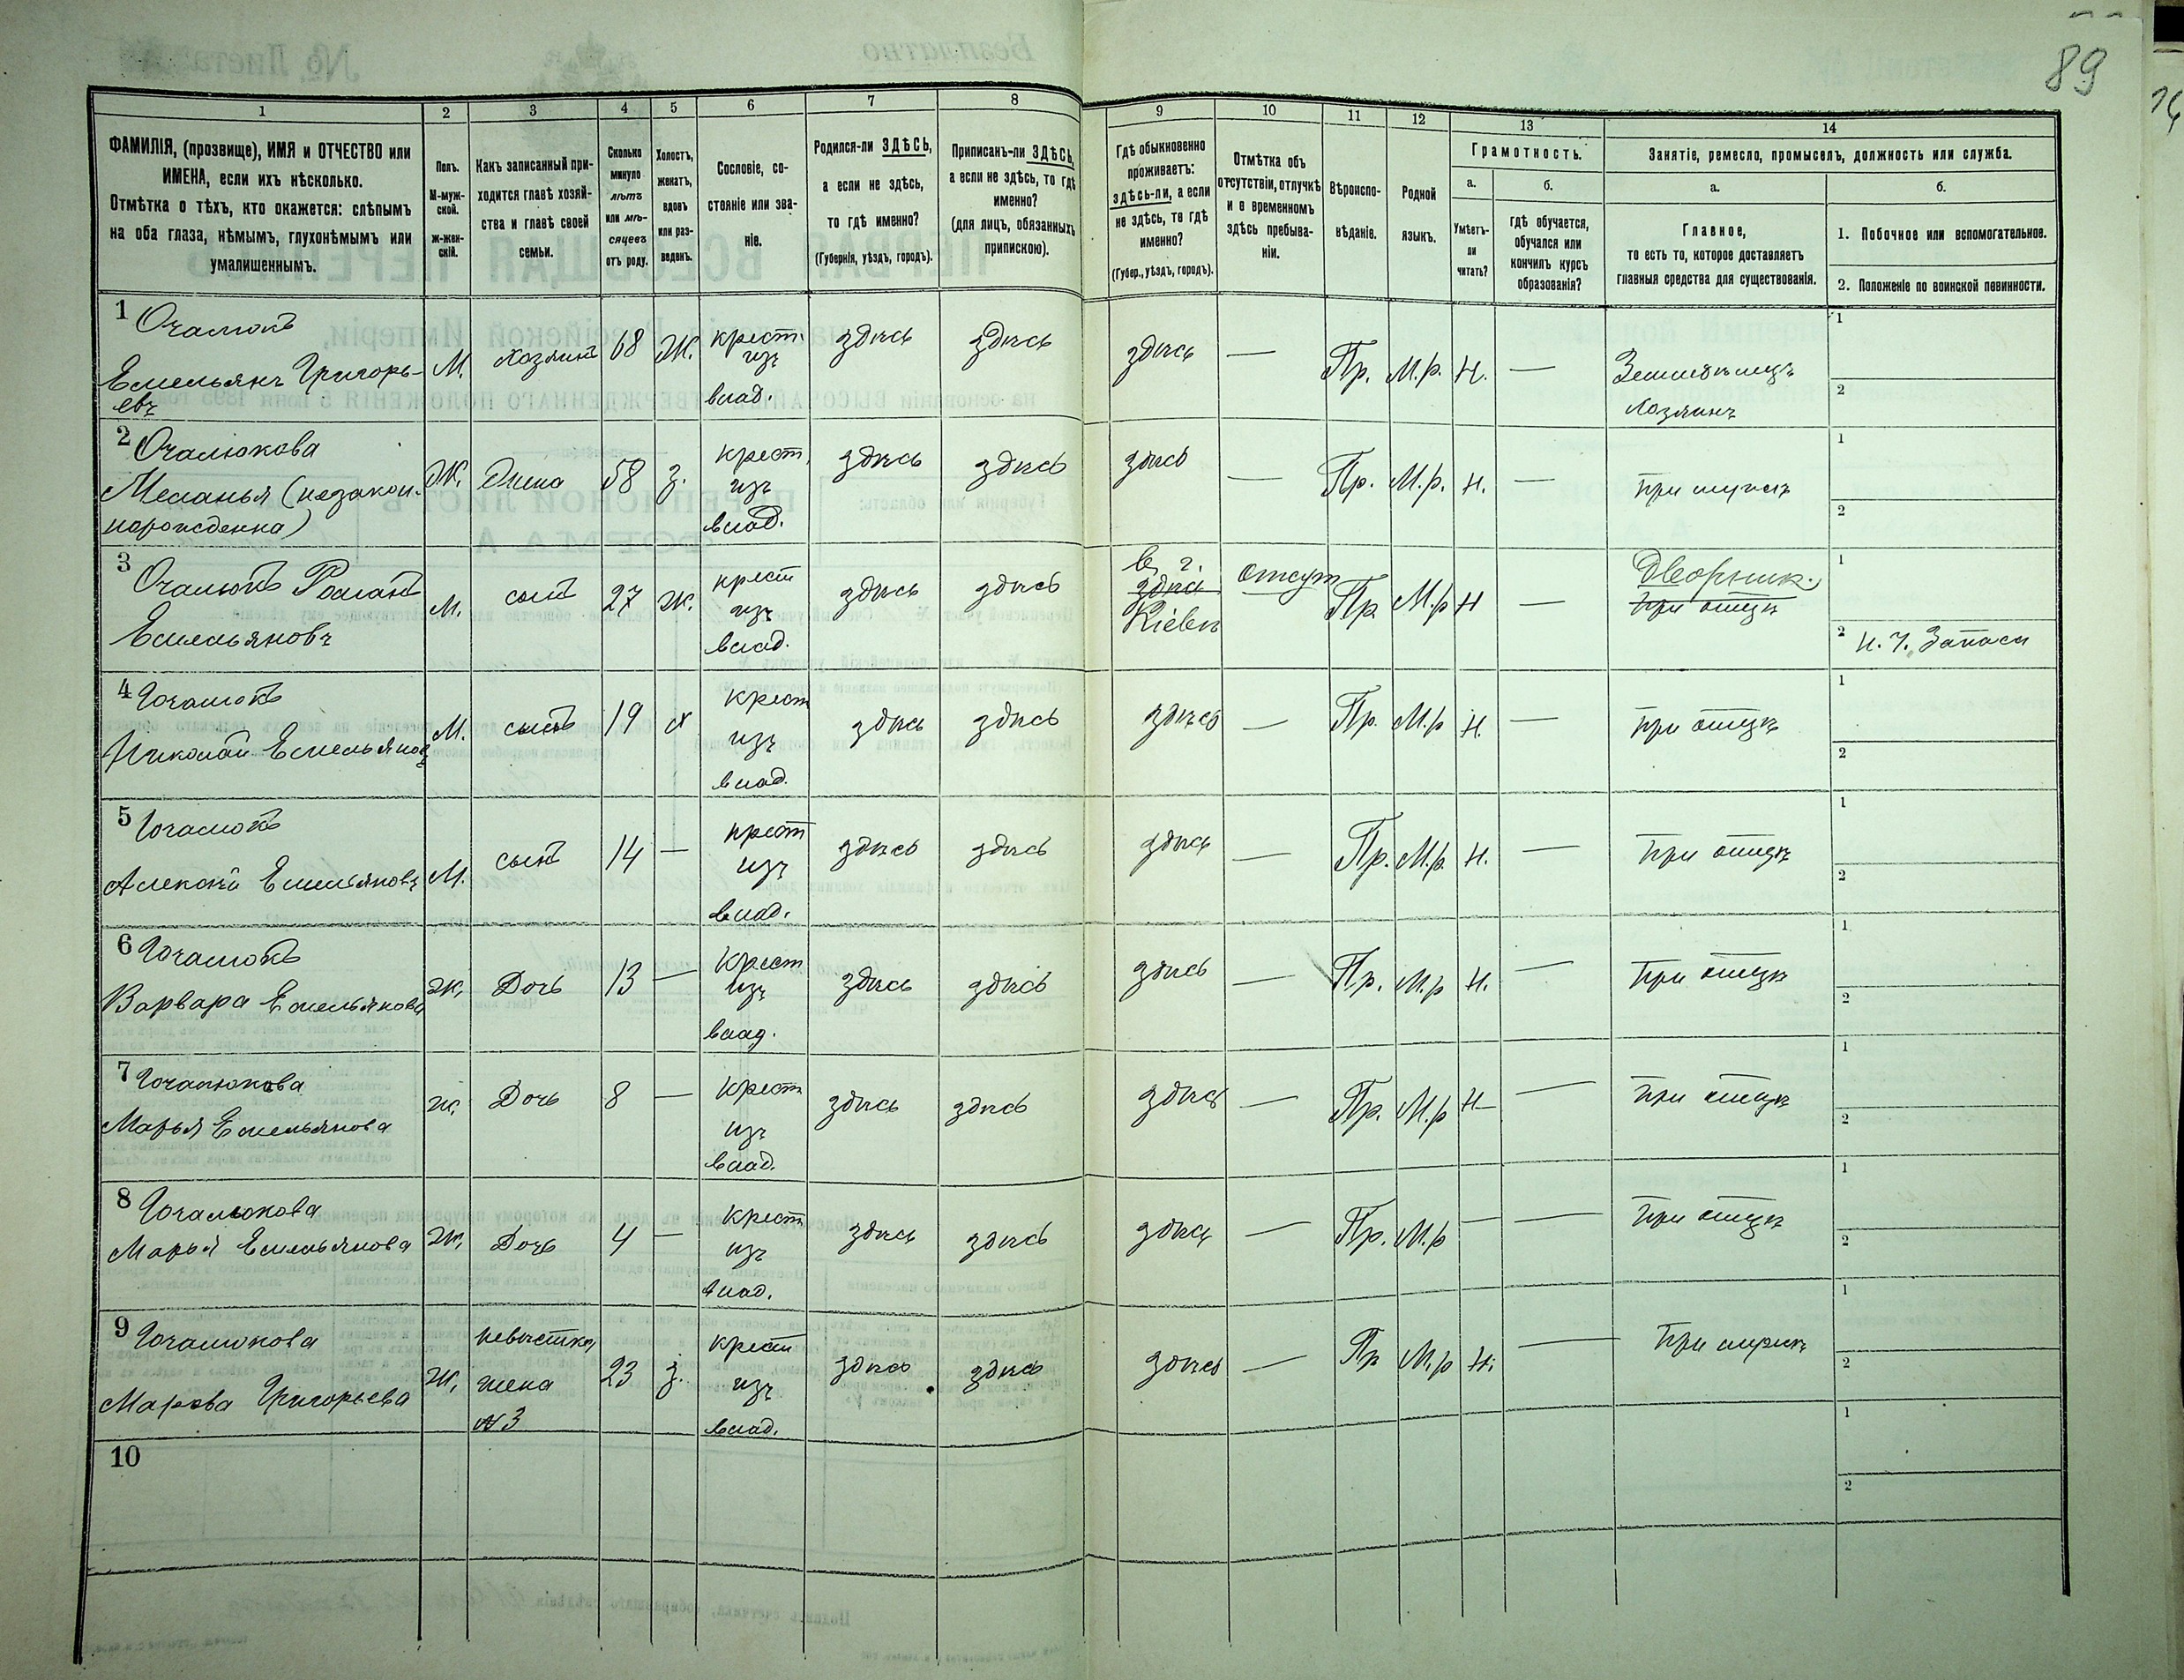 89
1
2
3
4
5
6
7
8
9
10
11
12
13
14
ФАМИЛІЯ, (прозвище), ИМЯ и ОТЧЕСТВО или
ИМЕНА, если ихъ нѣсколько.
Отмѣтка о тѣхъ, кто окажется: слѣпымъ
на оба глаза, нѣмымъ, глухонѣмымъ или
умалишеннымъ.
Полъ.
М-муж-
ской.
ж-жен-
скій.
Какъ записанный при-
ходится главѣ хозяй-
ства и главѣ своей
семьи.
Сколько
минуло
лѣтъ
или мѣ-
сяцевъ
отъ роду.
Холостъ,
женатъ,
вдовъ
или раз-
веденъ.
Сословіе, со-
стояніе или зва-
ніе.
Родился-ли ЗДѢСЬ,
а если не здѣсь,
то гдѣ именно?
(Губернія, уѣздъ, городъ).
Приписанъ-ли ЗДѢСЬ,
а если не здѣсь, то гдѣ
именно?
(для лицъ, обязанныхъ
припискою).
Гдѣ обыкновенно
проживаетъ:
здѣсь-ли, а если
не здѣсь, то гдѣ
именно?
(Губер., уѣздъ, городъ).
Отмѣтка объ
отсутствіи, отлучкѣ
и о временномъ
здѣсь пребыва-
ніи.
Вѣроиспо-
вѣданіе.
Родной
языкъ.
Грамотность.
а.
Умѣетъ-
ли
читать?
б.
гдѣ обучается,
обучался или
кончилъ курсъ
образованія?
Занятіе, ремесло, промыселъ, должность или служба.
а.
Главное,
то есть то, которое доставляетъ
главныя средства для существованія.
б.
1. Побочное или вспомогательное.
2. Положеніе по воинской повинности.
1 Очалюкъ
Емельянъ Григорь-
евъ
М. хозяинъ 68 Ж. крест. изъ влад. здѣсь здѣсь здѣсь — Пр. М.р. Н. — Земледѣлецъ
хозяинъ
1
2
2 Очалюкова
Меланья (незакон-
норожденна)
Ж. жена 58 з. крест. изъ влад. здѣсь здѣсь здѣсь — Пр. М.р. Н. — при мужѣ
1
2
3 Очалюкъ Романъ
Емельяновъ
М. сынъ 27 ж. крест изъ влад. здѣсь здѣсь въ г. здѣсь Кіевѣ отсут Пр М.р Н — Дворник.
при отцѣ
1
2 Н. Ч. Запаса
4 Очалюкъ
Николай Емельяновъ
М. сынъ 19 х крест изъ влад. здѣсь здѣсь здѣсь — Пр. М.р Н. — при отцѣ
1
2
5 Очалюкъ
Алексѣй Емельяновъ
М. сынъ 14 — крест изъ влад. здѣсь здѣсь здѣсь — Пр. М.р. Н. — при отцѣ
1
2
6 Очалюкъ
Варвара Емельянова
ж. Дочь 13 — Крест изъ влад. здѣсь здѣсь здѣсь — Пр. М.р Н. — при отцѣ
1
2
7 Очалюкова
Марья Емельянова
ж. Дочь 8 — Крест изъ влад. здѣсь здѣсь здѣсь — Пр. М.р Н — при отцѣ
1
2
8 Очалюкова
Марья Емельянова
ж. Дочь 4 — Крест изъ влад. здѣсь здѣсь здѣсь — Пр. М.р — — при отцѣ
1
2
9 Очалюкова
Марфа Григорьева
ж. невѣстка, жена №3 23 з. крест изъ влад. здѣсь здѣсь здѣсь — Пр М.р Н. —
1
2
10
1
2